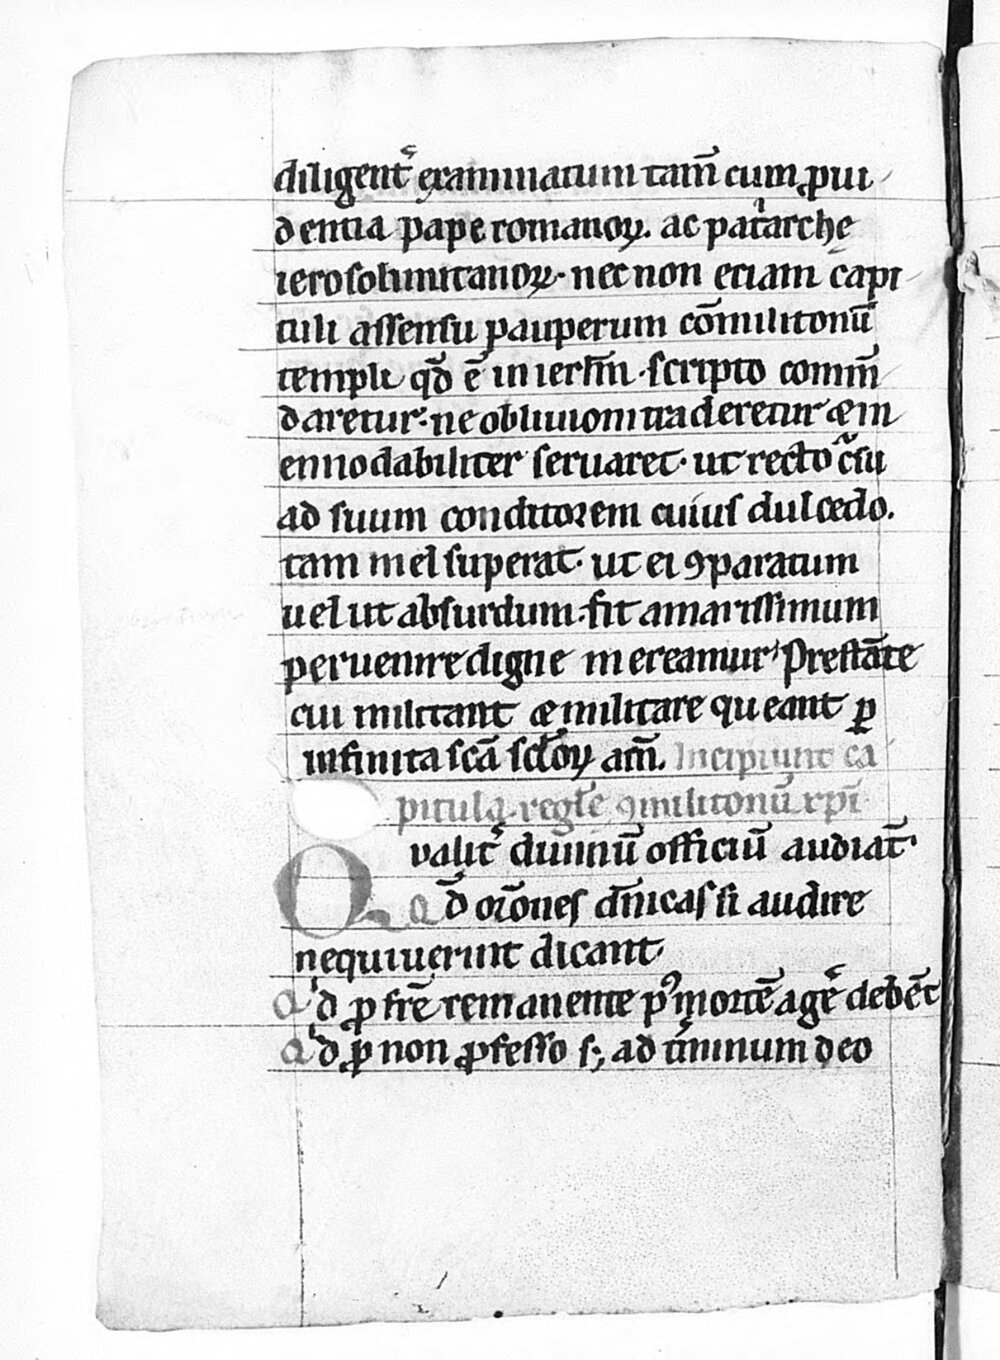 diligent᷑ examinatum tam̅ cum ꝓui
dentia pape romanoꝝ. ac patͥarche
ierosolimitanoꝝ. nec non etiam capi
tuli assensu pauperum co̅militonu̅
templi qd̅ e̅ in ierl̅m. scripto comm̅
daretur. ne obliuioni traderetur & in
ennodabiliter seruaret. ut recto c᷑su
ad suum conditorem cuius dulcedo.
tam mel superat. ut ei ꝯparatum
uelut absurdum. sit amarissimum
peruenire digne mereamur. Presta̅te
cui militant & militare queant ꝑ
infinita sc̅a sc̅loꝝ am̅. Incipiunt ca
pitula regule ꝯmilitonu̅ xp̅i
Qualit᷑ diuinu̅ officiu̅ audiat᷑.
Qd̅ or̅ones d̅nicas si audire
nequiuerint dicant.
Qͩ ꝓ fr̅e remanente pꝰ morte̅ age᷑ debe̅t
Qͩ ꝑ non ꝓfesso s; ad t᷑minum deo